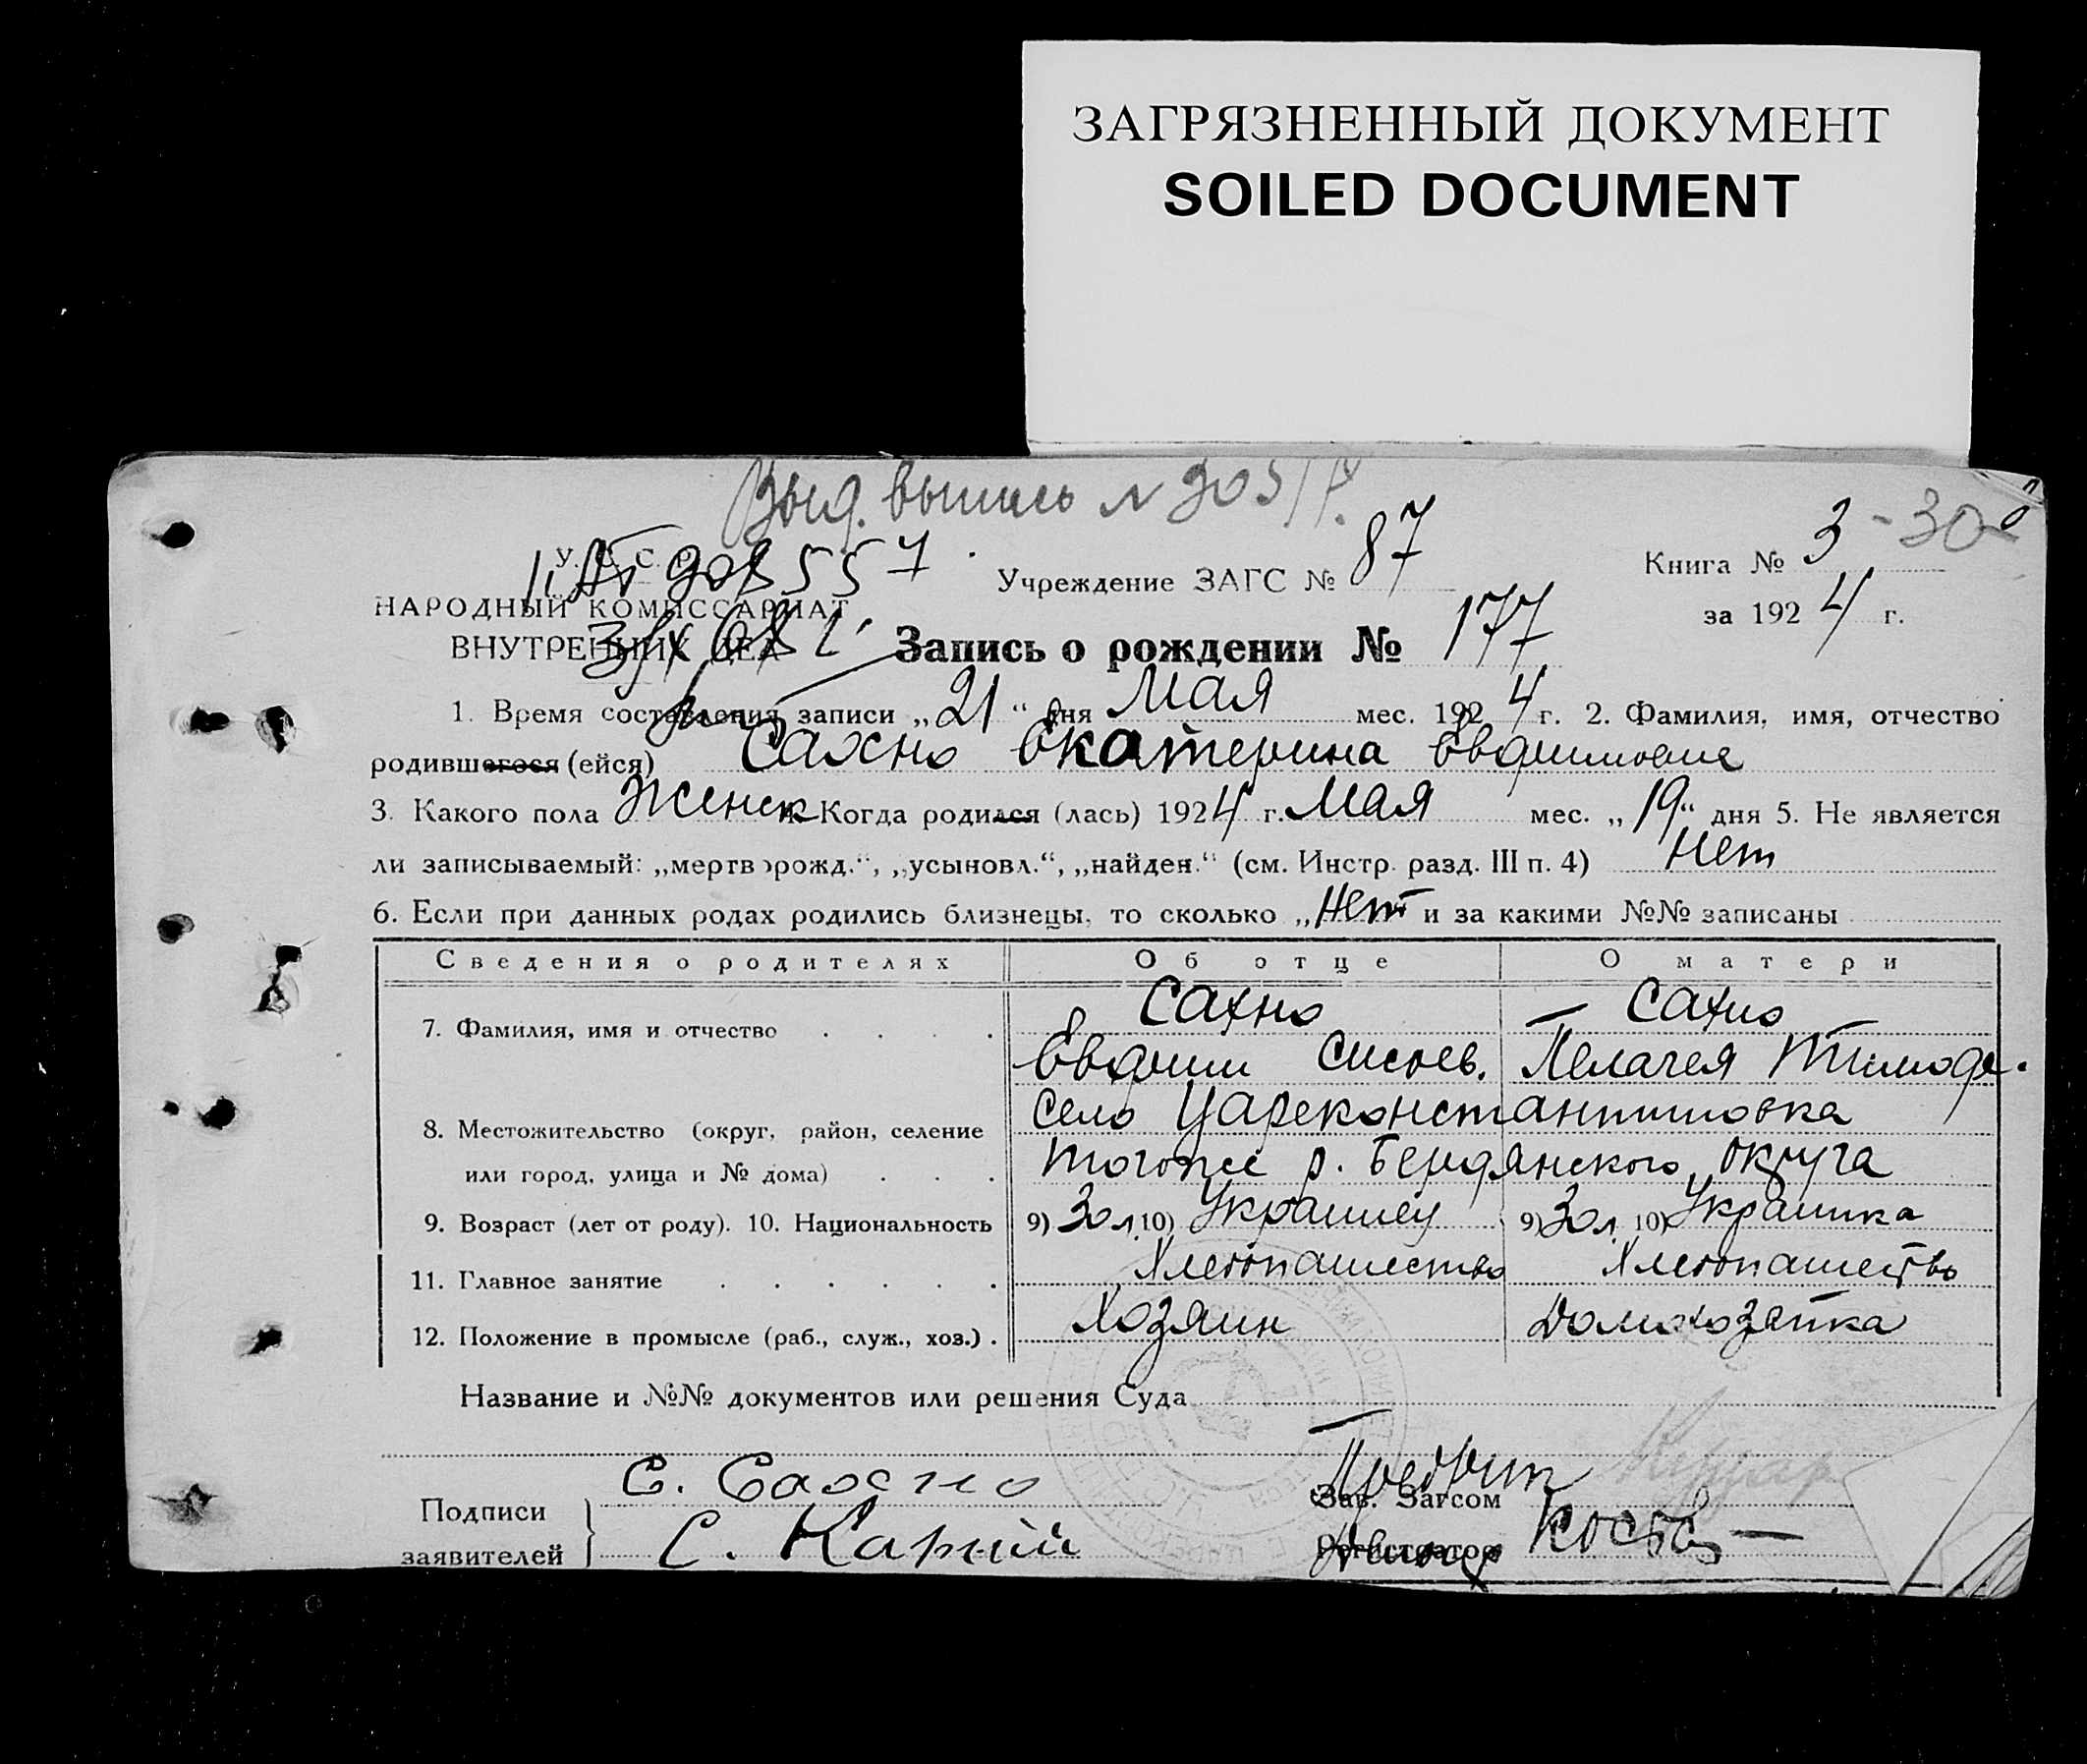 ЗАГРЯЗНЕННЫЙ ДОКУМЕНТ
SOILED DOCUMENT
Выд. выпись №
У. С. С. Р.
НАРОДНЫЙ КОМИССАРИАТ
ВНУТРЕННИХ ДЕЛ
Учреждение ЗАГС № 87
Книга № 3 - 30
за 1924 г.
Запись о рождении № 177
1. Время составления записи „21“ дня Мая мес. 1924 г. 2. Фамилия, имя, отчество
родившегося (ейся) Сахно Екатерина Евдимовна
3. Какого пола Женск 4. Когда родился (лась) 1924 г. Мая мес. „19“ дня 5. Не является
ли записываемый: „мертворожд.“, „усыновл.“, „найден.“ (см. Инстр. разд. III п. 4) Нет
6. Если при данных родах родились близнецы, то сколько „Нет и за какими №№ записаны
Сведения о родителях Об отце О матери
7. Фамилия, имя и отчество Сахно Сахно
Евдим Сисоев. Пелагея Тимоф.
8. Местожительство (округ, район, селение село Цареконстантиновка
или город, улица и № дома) того же р. Бердянского округа
9. Возраст (лет от роду). 10. Национальность 9) 30 л 10) Украинец 9) 30 л 10) Украинка
11. Главное занятие Хлебопашество Хлебопашество
12. Положение в промысле (раб., служ., хоз.) . Хозяин Домохозяйка
Название и №№ документов или решения Суда
Подписи заявителей
С. Сахно
Зав. Загсом
Регистратор